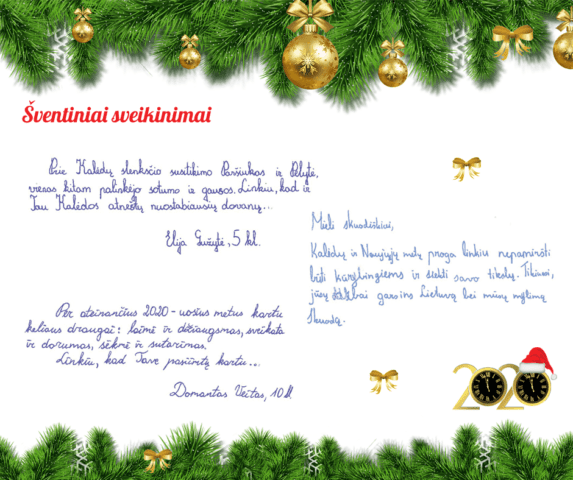 Šventiniai sveikinimai
Prie Kalėdų slenksčio susitikimo Paršiukas ir Pelytė,
vienas kitam palinkėjo sotumo ir gausos. Linkiu, kad ir
Tau Kalėdos atneštų nuostabiausių dovanų...
Elija Gužytė, 5 kl.
Mieli skuodiškiai,
Kalėdų ir Naujųjų metų proga linkiu nepamiršti
būti kūrybingiems ir siekti savo tikslų. Tikiuosi,
jūsų darbai garsins Lietuvą bei mūsų mylimą
Skuodą.
Per ateinančius 2020-uosius metus kartu
keliaus draugai: laimė ir džiaugsmas, sveikata
ir dorumas, sėkmė ir sutarimas.
Linkiu, kad Tave pasiimtų kartu...
Domantas Vaitas, 10
2020